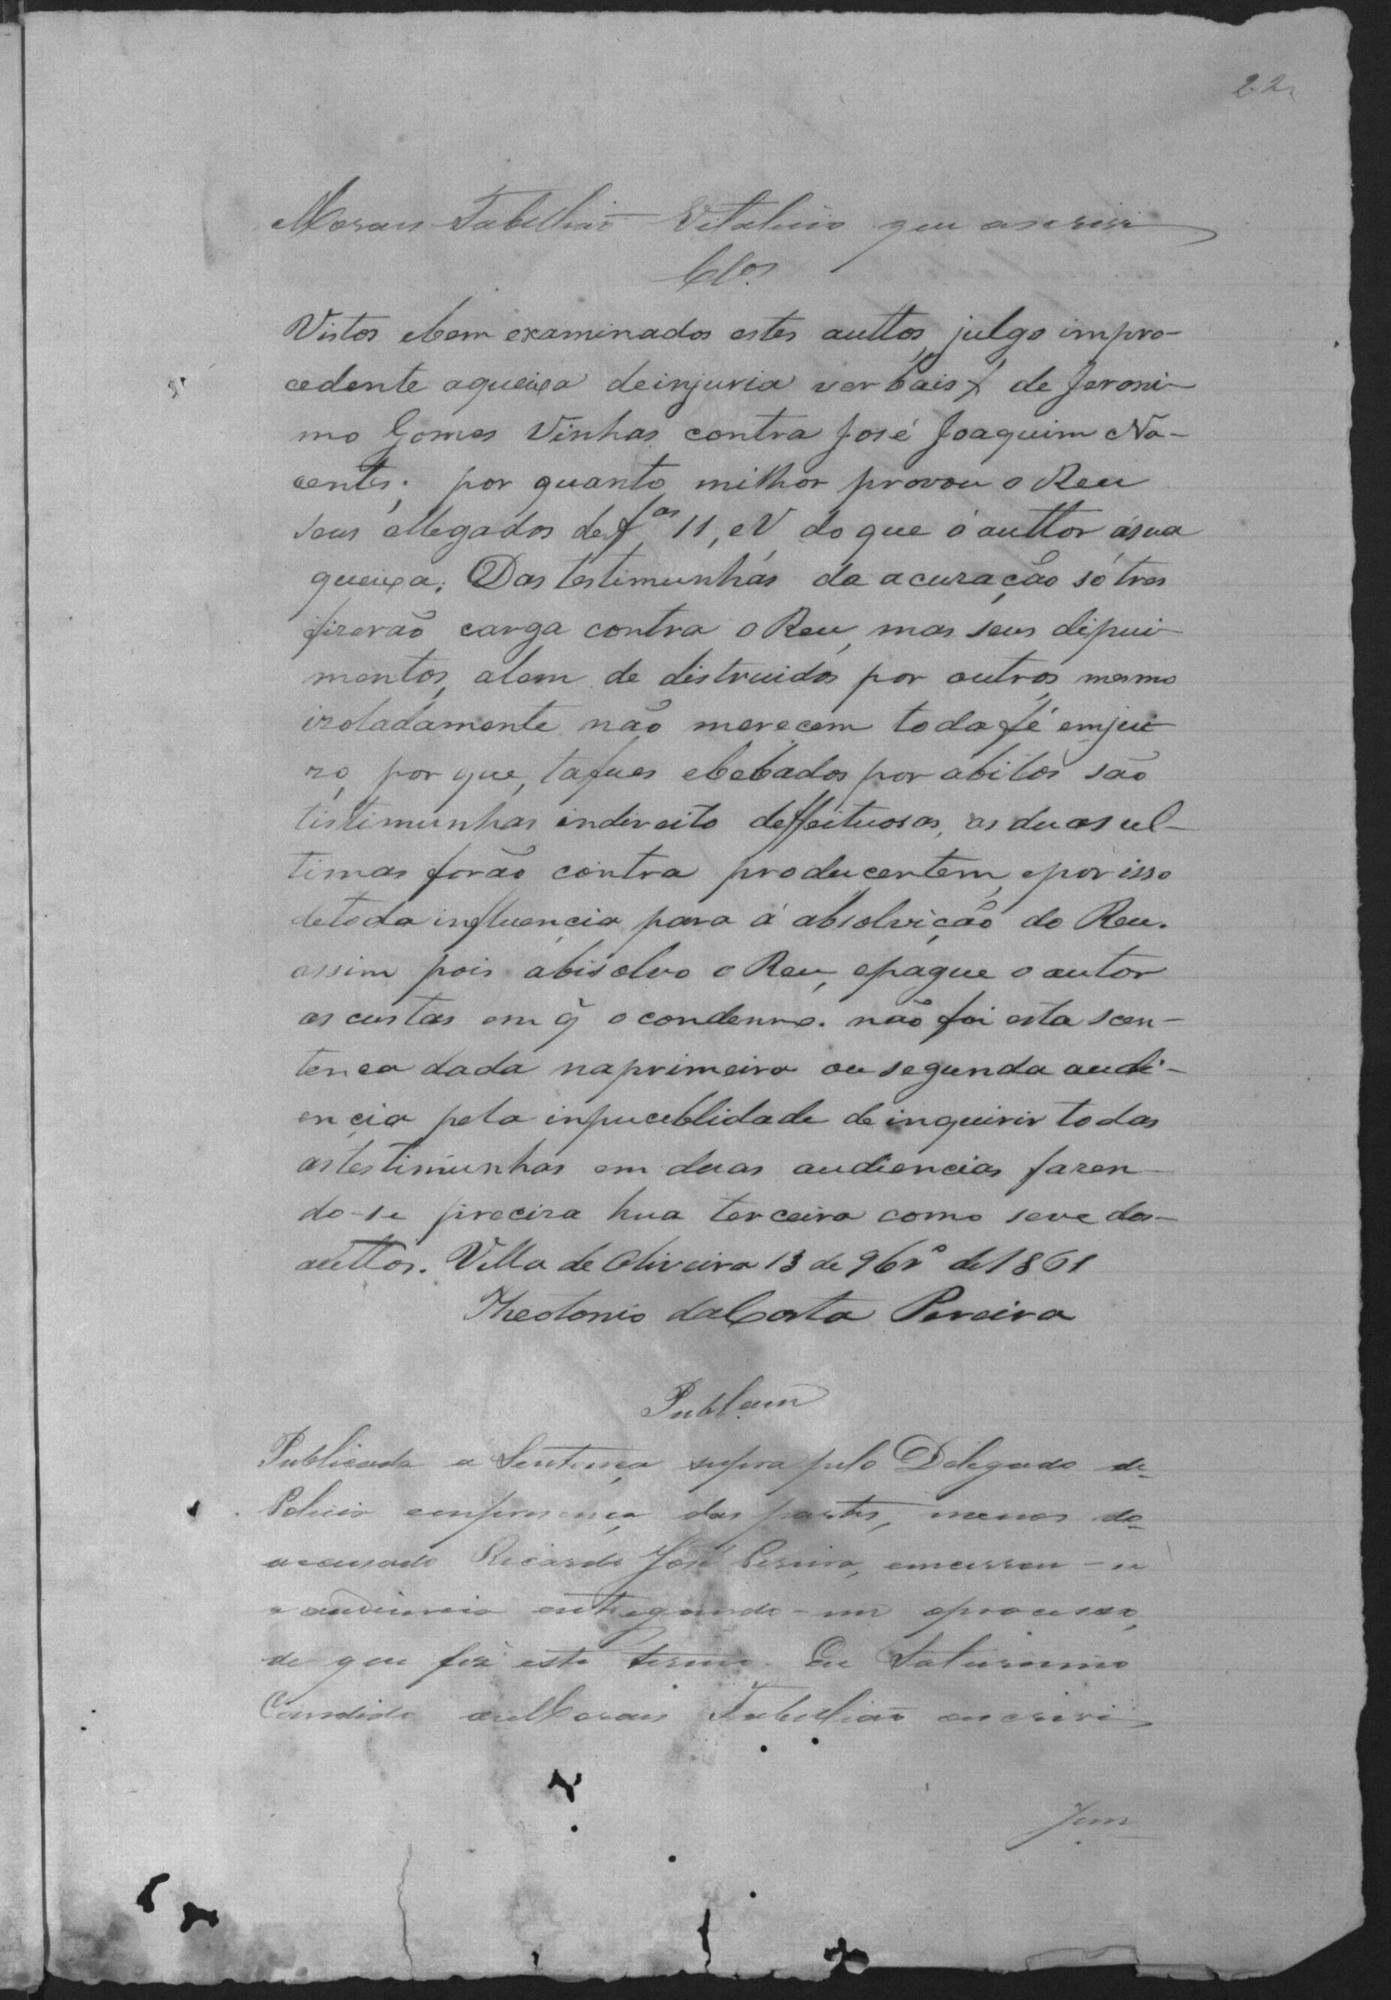 22
Moraes Tabellião Vitalicio que escrivi
Cl.os
Vistos ebem examinados estes auttos, julgo impro-
cedente aqueixa deinjuria verbais de Jeroni-
mo Gomes Vinhas contra José Joaquim No-
centes; por quanto milhor provou o Reu
seus allegados def.as 11, eV do que ó auttor ásua
queixa; Das testimunhás da acuzação só tres
fizerão carga contra o Reu, mas seus dipui-
mentos, alem de distruidos por outros, mesmo
izoladamente não merecem toda fé emjui-
zo, por que, tafues ebebados por abitos são
tistimunhas indireito deffeituosas, as duas ul-
timas forão contra producentem, epor isso
detoda influencia para á absolvição do Reu.
assim pois ábisolvo o Reu, epague o autor
as custas em q̃ o condenno. não foi esta scen-
tença dada naprimeira ou segunda audi-
encia pela inpuceblidade de inquirir todas
astestimunhas em duas audiencias fazen-
do-se preciza hua terceira como seve dos
auttos. Villa de Oliveira 13 de 9br.º de 1861
Theotonio daCosta Pereira
Publ.am
Publicada a Sentença supra pelo Delegado de
Policia empresença das partes, menos do
accusado Ricardo José Pereira, encerrou-se
a audiencia entregando-me oprocesso,
de que fiz este termo. Eu Saturnino
Candido de Moraes Tabellião escrivi